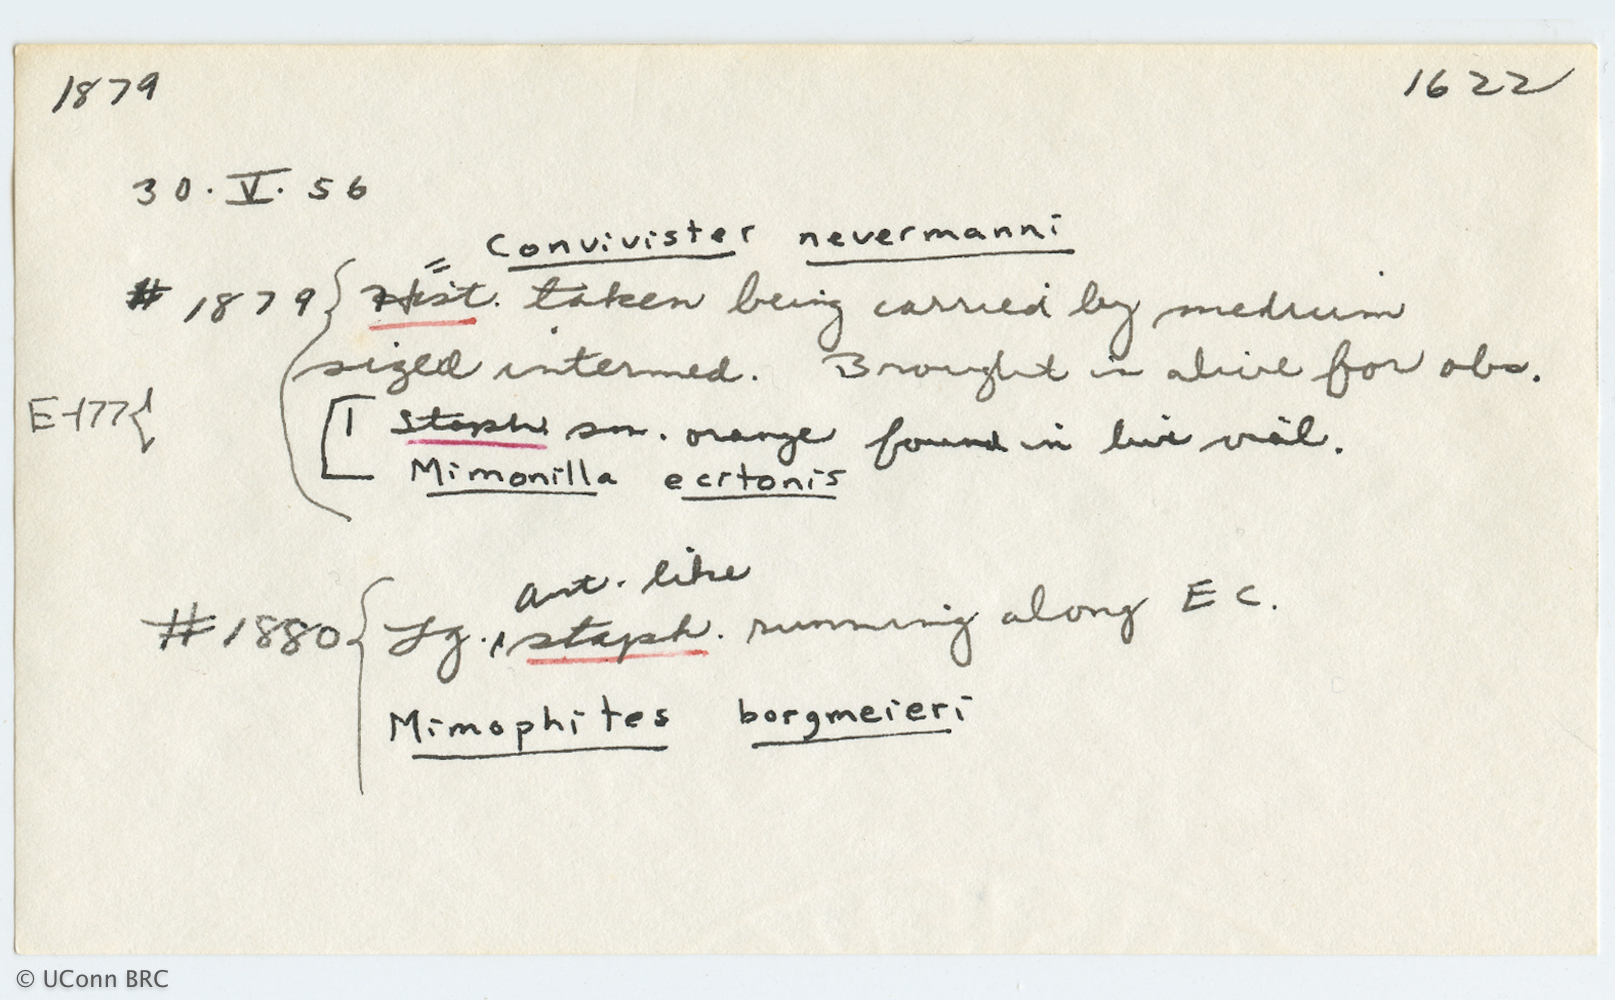 1879 1622
30. V. 56
= Convivister nevermanni
# 1879 { Hist. taken being carried by medium
sized intermed. Brought in alive for obs.
E-177 {
[ 1 Staph. sm. orange found in live vial.
Mimonilla ecitonis
ant-like
#1880 { Lg. ^ staph. running along EC.
Mimophites borgmeieri
© UConn BRC